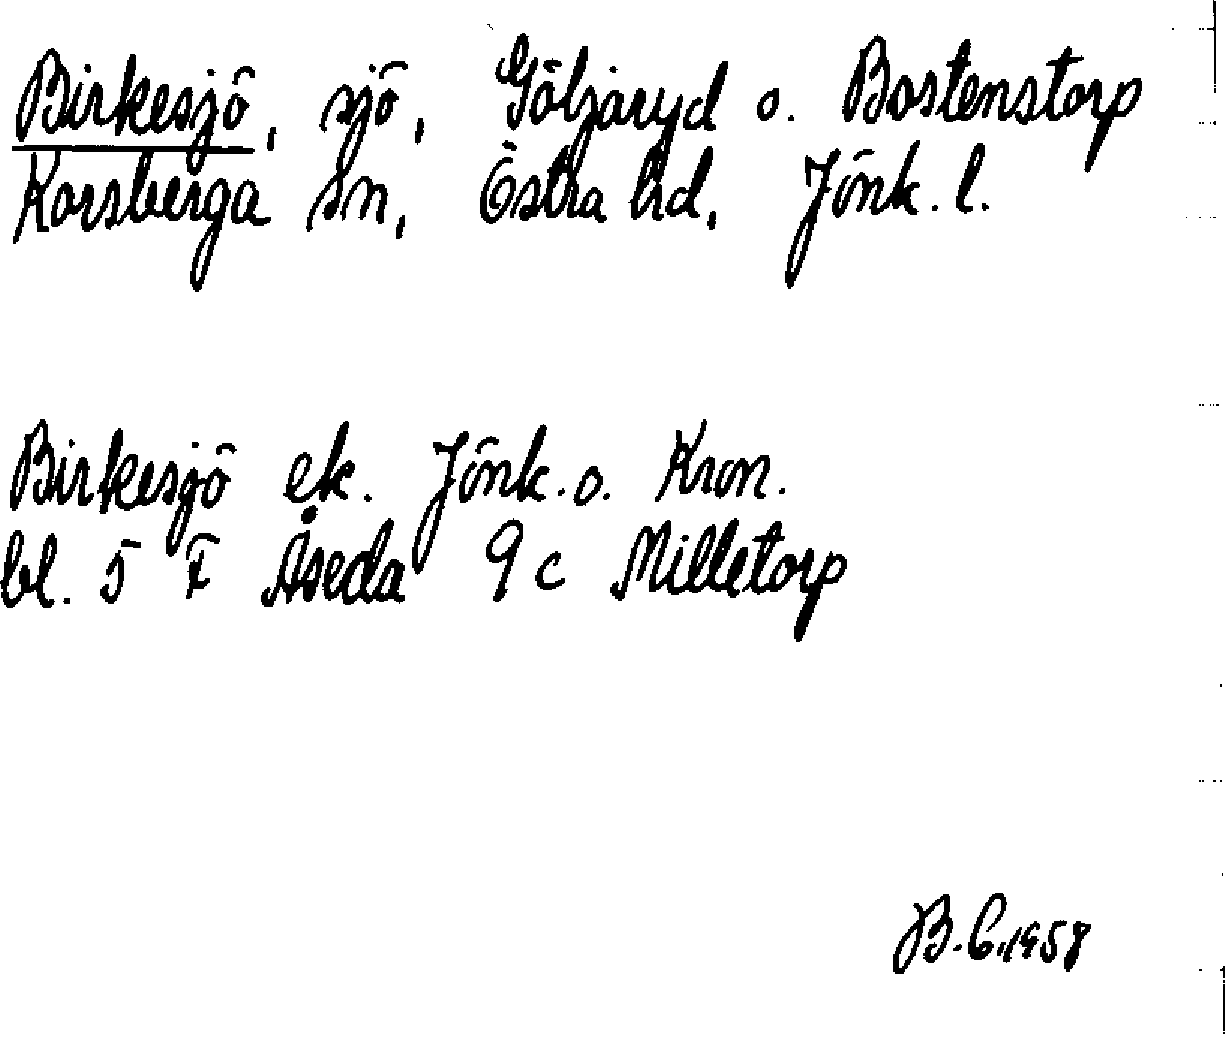 Birkesjö, sjö, Göljaryd o. Bostenstorp
Korsberga sn, Östra hd, Jönk. l.
Birkesjö ek. Jönk. o. Kron.
bl. 5 F Åseda 9 c Milletorp
B.C. 1958